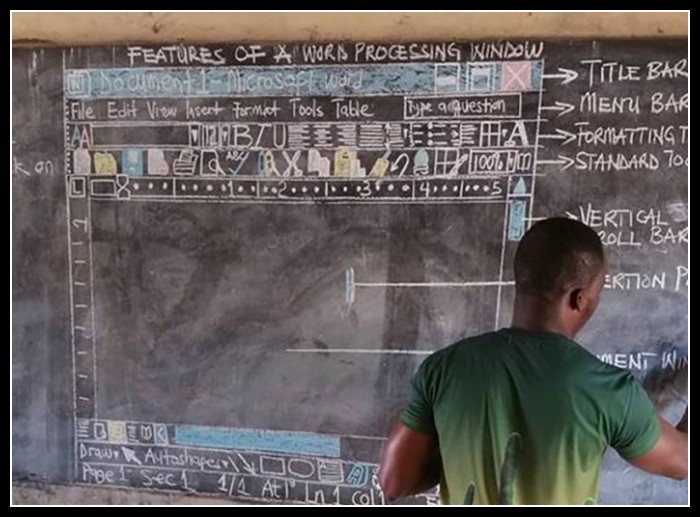 FEATURES OF A WORD PROCESSING WINDOW
W Document 1 - Microsoft word
TITLE BAR
File Edit View Insert Format Tools Table
Type a question
MENU BAR
AA 12 B I U A
FORMATTING T
ABC 100%
STANDARD TOO
k on
L 1 2 3 4 5
VERTICAL S
ROLL BAR
ERTION P
MENT WIN
Draw Autoshapes
Page 1 Sec 1 1/1 At 1" Ln 1 Col